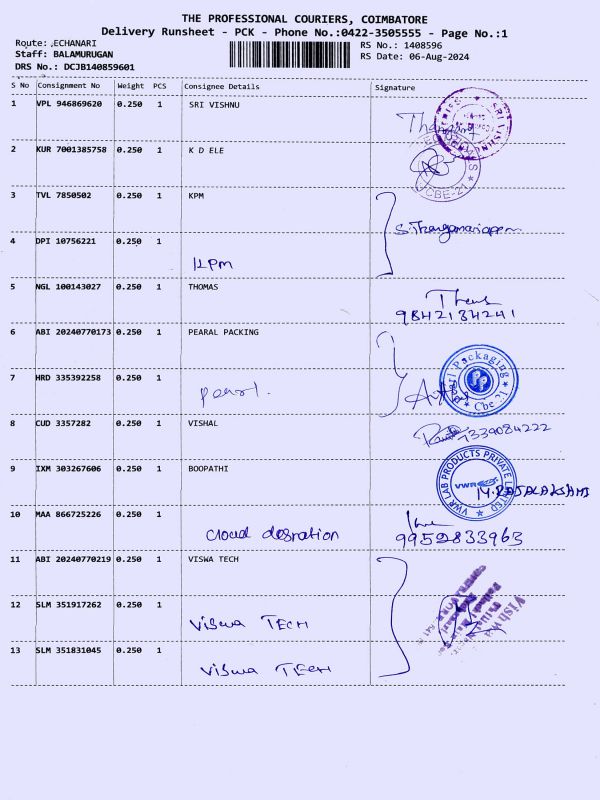 THE PROFESSIONAL COURIERS, COIMBATORE
Delivery Runsheet - PCK - Phone No.:0422-3505555 - Page No.:1
Route: ,ECHANARI
Staff: BALAMURUGAN
DRS No.: DCJB140859601
RS No.: 1408596
RS Date: 06-Aug-2024
S No Consignment No Weight PCS Consignee Details Signature
1 VPL 946869620 0.250 1 SRI VISHNU
2 KUR 7001385758 0.250 1 K D ELE
CBE-21
3 TVL 7850502 0.250 1 KPM
S.Thangamariappan
4 DPI 10756221 0.250 1
KPM
5 NGL 100143027 0.250 1 THOMAS
9842134241
6 ABI 20240770173 0.250 1 PEARAL PACKING
Pearl Packaging
Cbe-21
7 HRD 335392258 0.250 1
Pearl.
8 CUD 3357282 0.250 1 VISHAL
7339084222
9 IXM 303267606 0.250 1 BOOPATHI
VWR LAB PRODUCTS PRIVATE LIMITED
VWR
M.RAJALAKSHMI
10 MAA 866725226 0.250 1
cloud desration
9952833963
11 ABI 20240770219 0.250 1 VISWA TECH
12 SLM 351917262 0.250 1
Viswa TECH
13 SLM 351831045 0.250 1
Viswa TECH